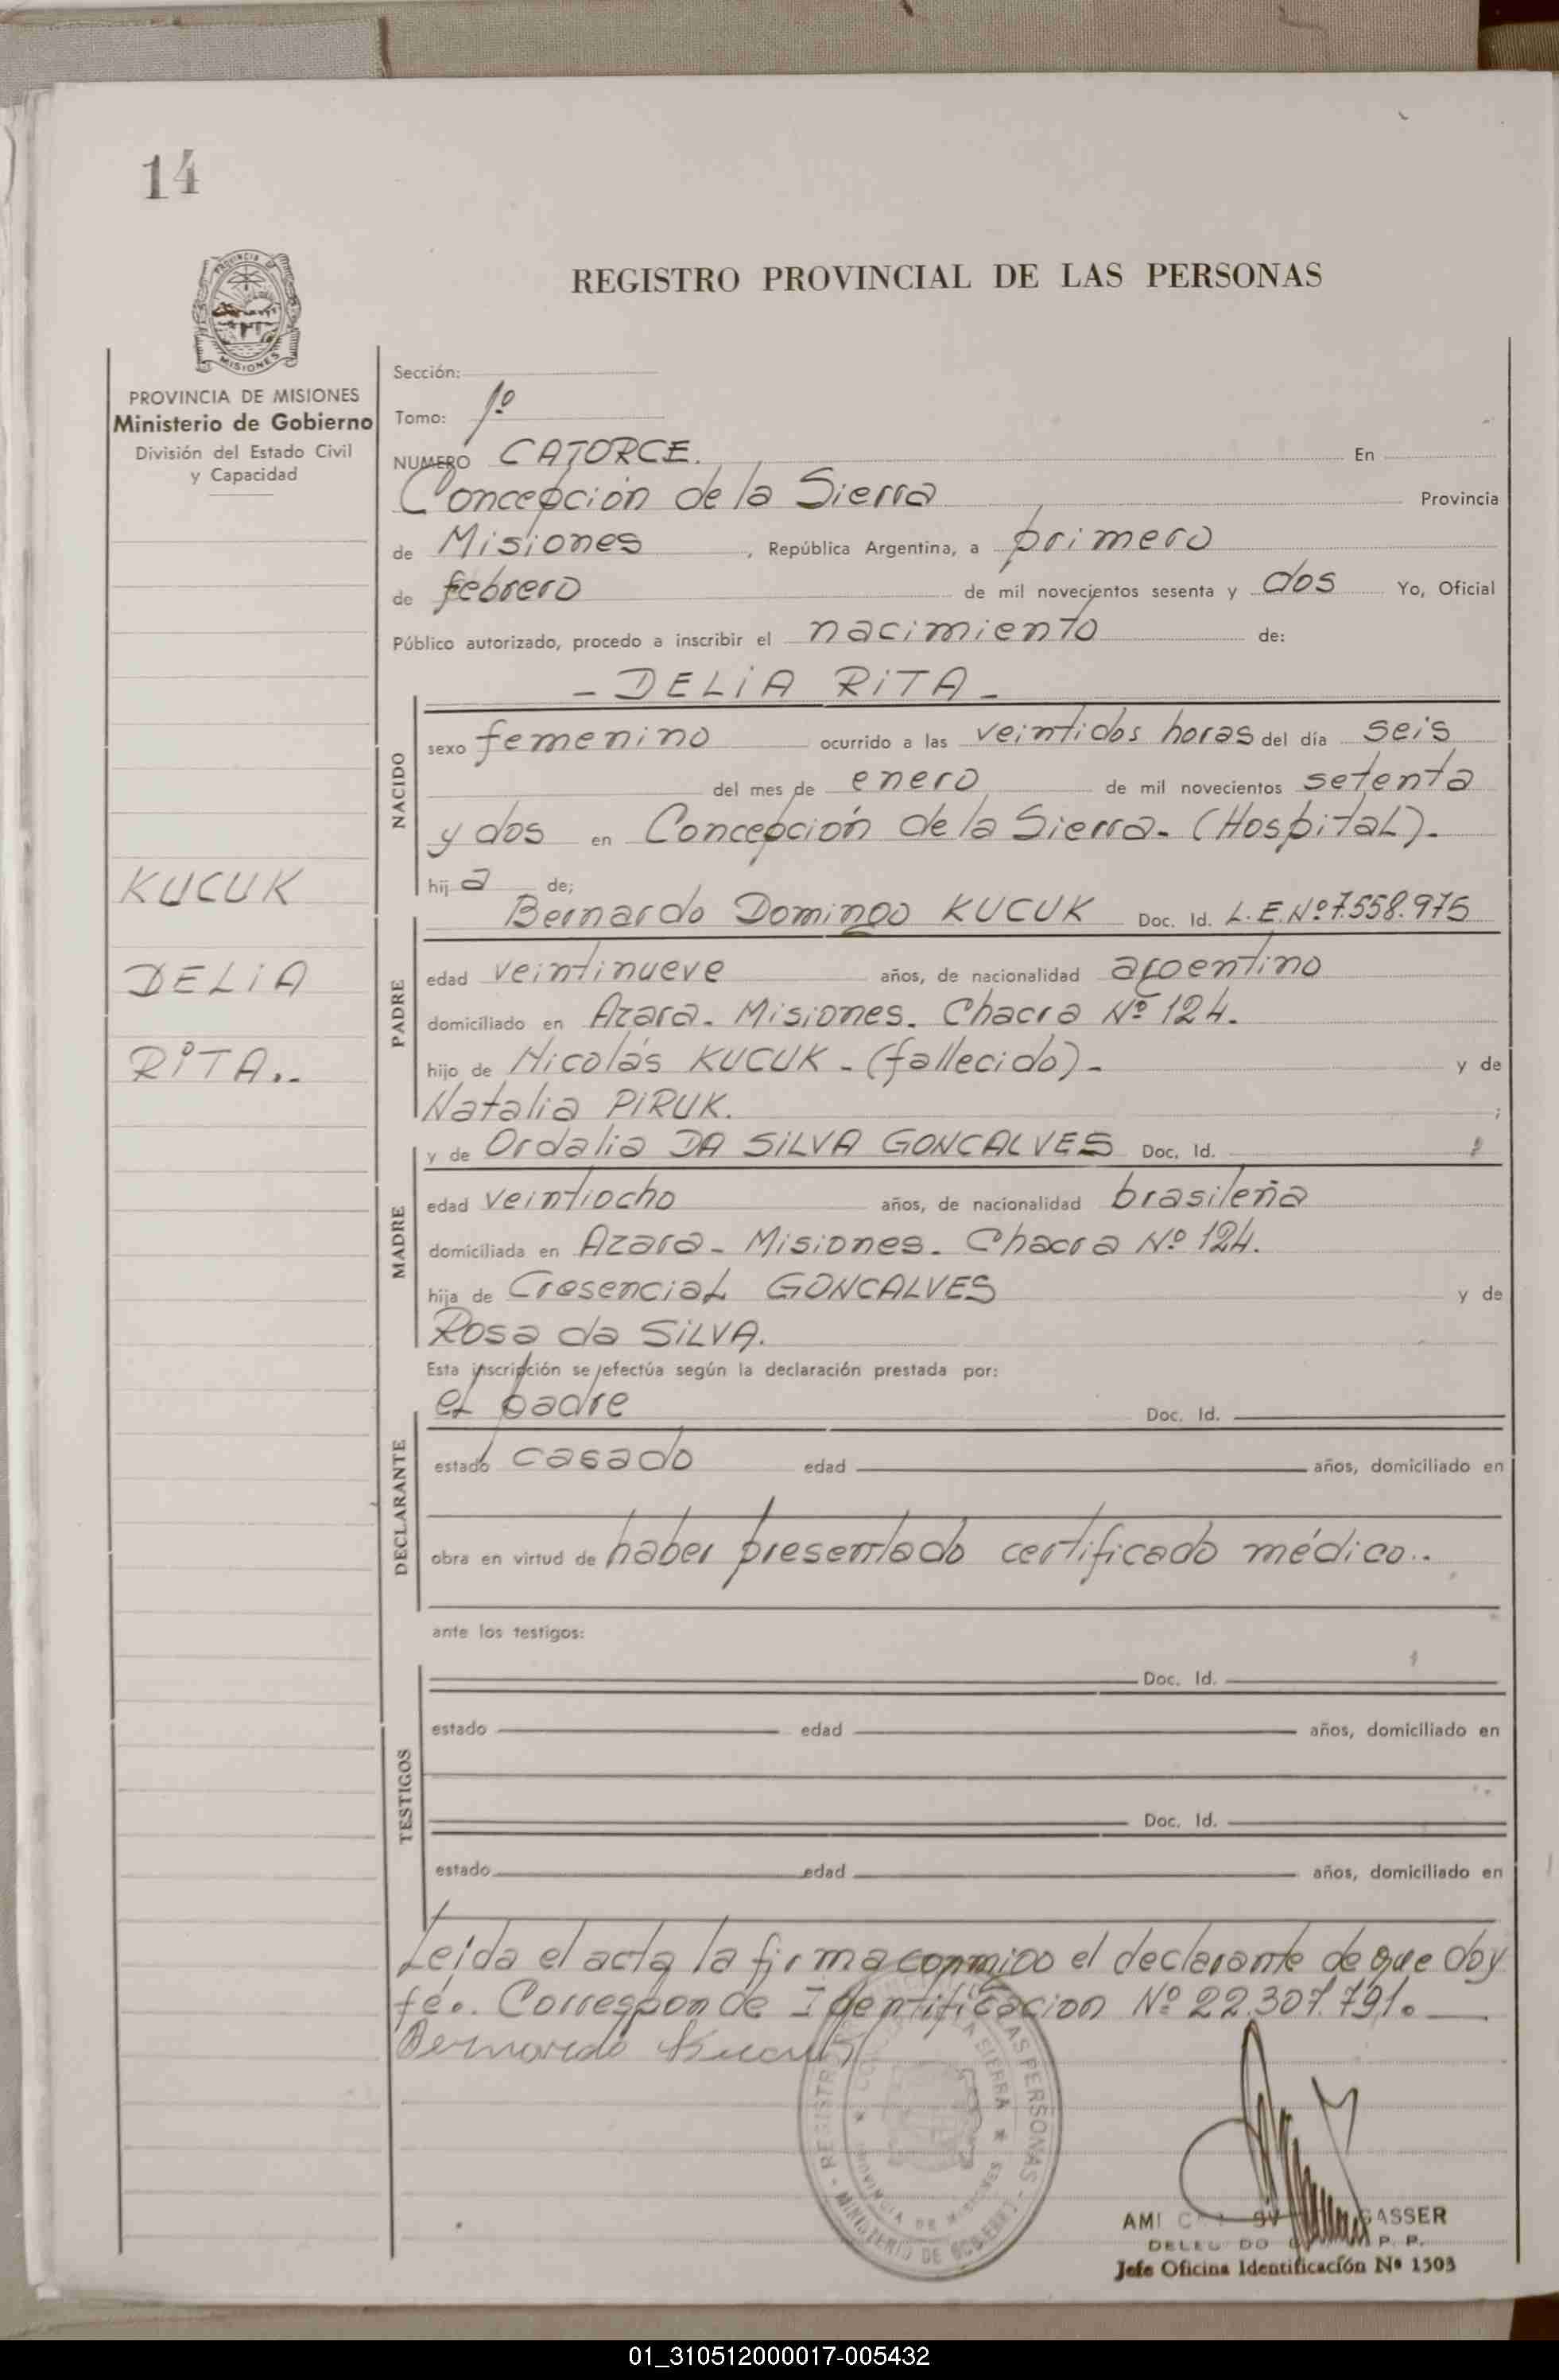 14
REGISTRO PROVINCIAL DE LAS PERSONAS
PROVINCIA DE MISIONES
Ministerio de Gobierno
División del Estado Civil
y Capacidad
Sección:
Tomo: 1º
NUMERO CATORCE. En
Concepción de la Sierra Provincia
de Misiones, República Argentina, a primero
de febrero de mil novecientos sesenta y dos Yo, Oficial
Público autorizado, procedo a inscribir el nacimiento de:
- DELiA RiTA -
NACIDO
sexo femenino ocurrido a las veintidos horas del día seis
del mes de enero de mil novecientos setenta
y dos en Concepción de la Sierra. (HospitaL).
hij a de;
KUCUK
DELiA
RiTA..
PADRE
Bernardo Domingo KUCUK Doc. Id. L.E.Nº 7.558.975
edad veintinueve años, de nacionalidad argentino
domiciliado en Azara. Misiones. Chacra Nº 124.
hijo de Nicolás KUCUK - (fallecido) - y de
Natalia PiRUK. ;
MADRE
y de Ordalia DA SiLVA GONCALVES Doc. Id.
edad veintiocho años, de nacionalidad brasileña
domiciliada en Azara - Misiones. Chacra Nº 124.
hija de CresenciaL GONCALVES y de
Rosa da SiLVA.
Esta inscripción se efectúa según la declaración prestada por:
DECLARANTE
eL padre Doc. Id.
estado casado edad años, domiciliado en
obra en virtud de haber presentado certificado médico..
ante los testigos:
TESTIGOS
Doc. Id.
estado edad años, domiciliado en
Doc. Id.
estado edad años, domiciliado en
Leida el acta la firma conmigo el declarante de que doy
fé.. Corresponde Identificacion Nº 22.307.791.
Bernardo Kucuk
REGISTRO LAS PERSONAS - MINISTERIO DE GOBIERNO
SIERRA ★ PROVINCIA DE MISIONES ★
GASSER
P. P.
Jefe Oficina Identificación Nº 1503
01_310512000017-005432